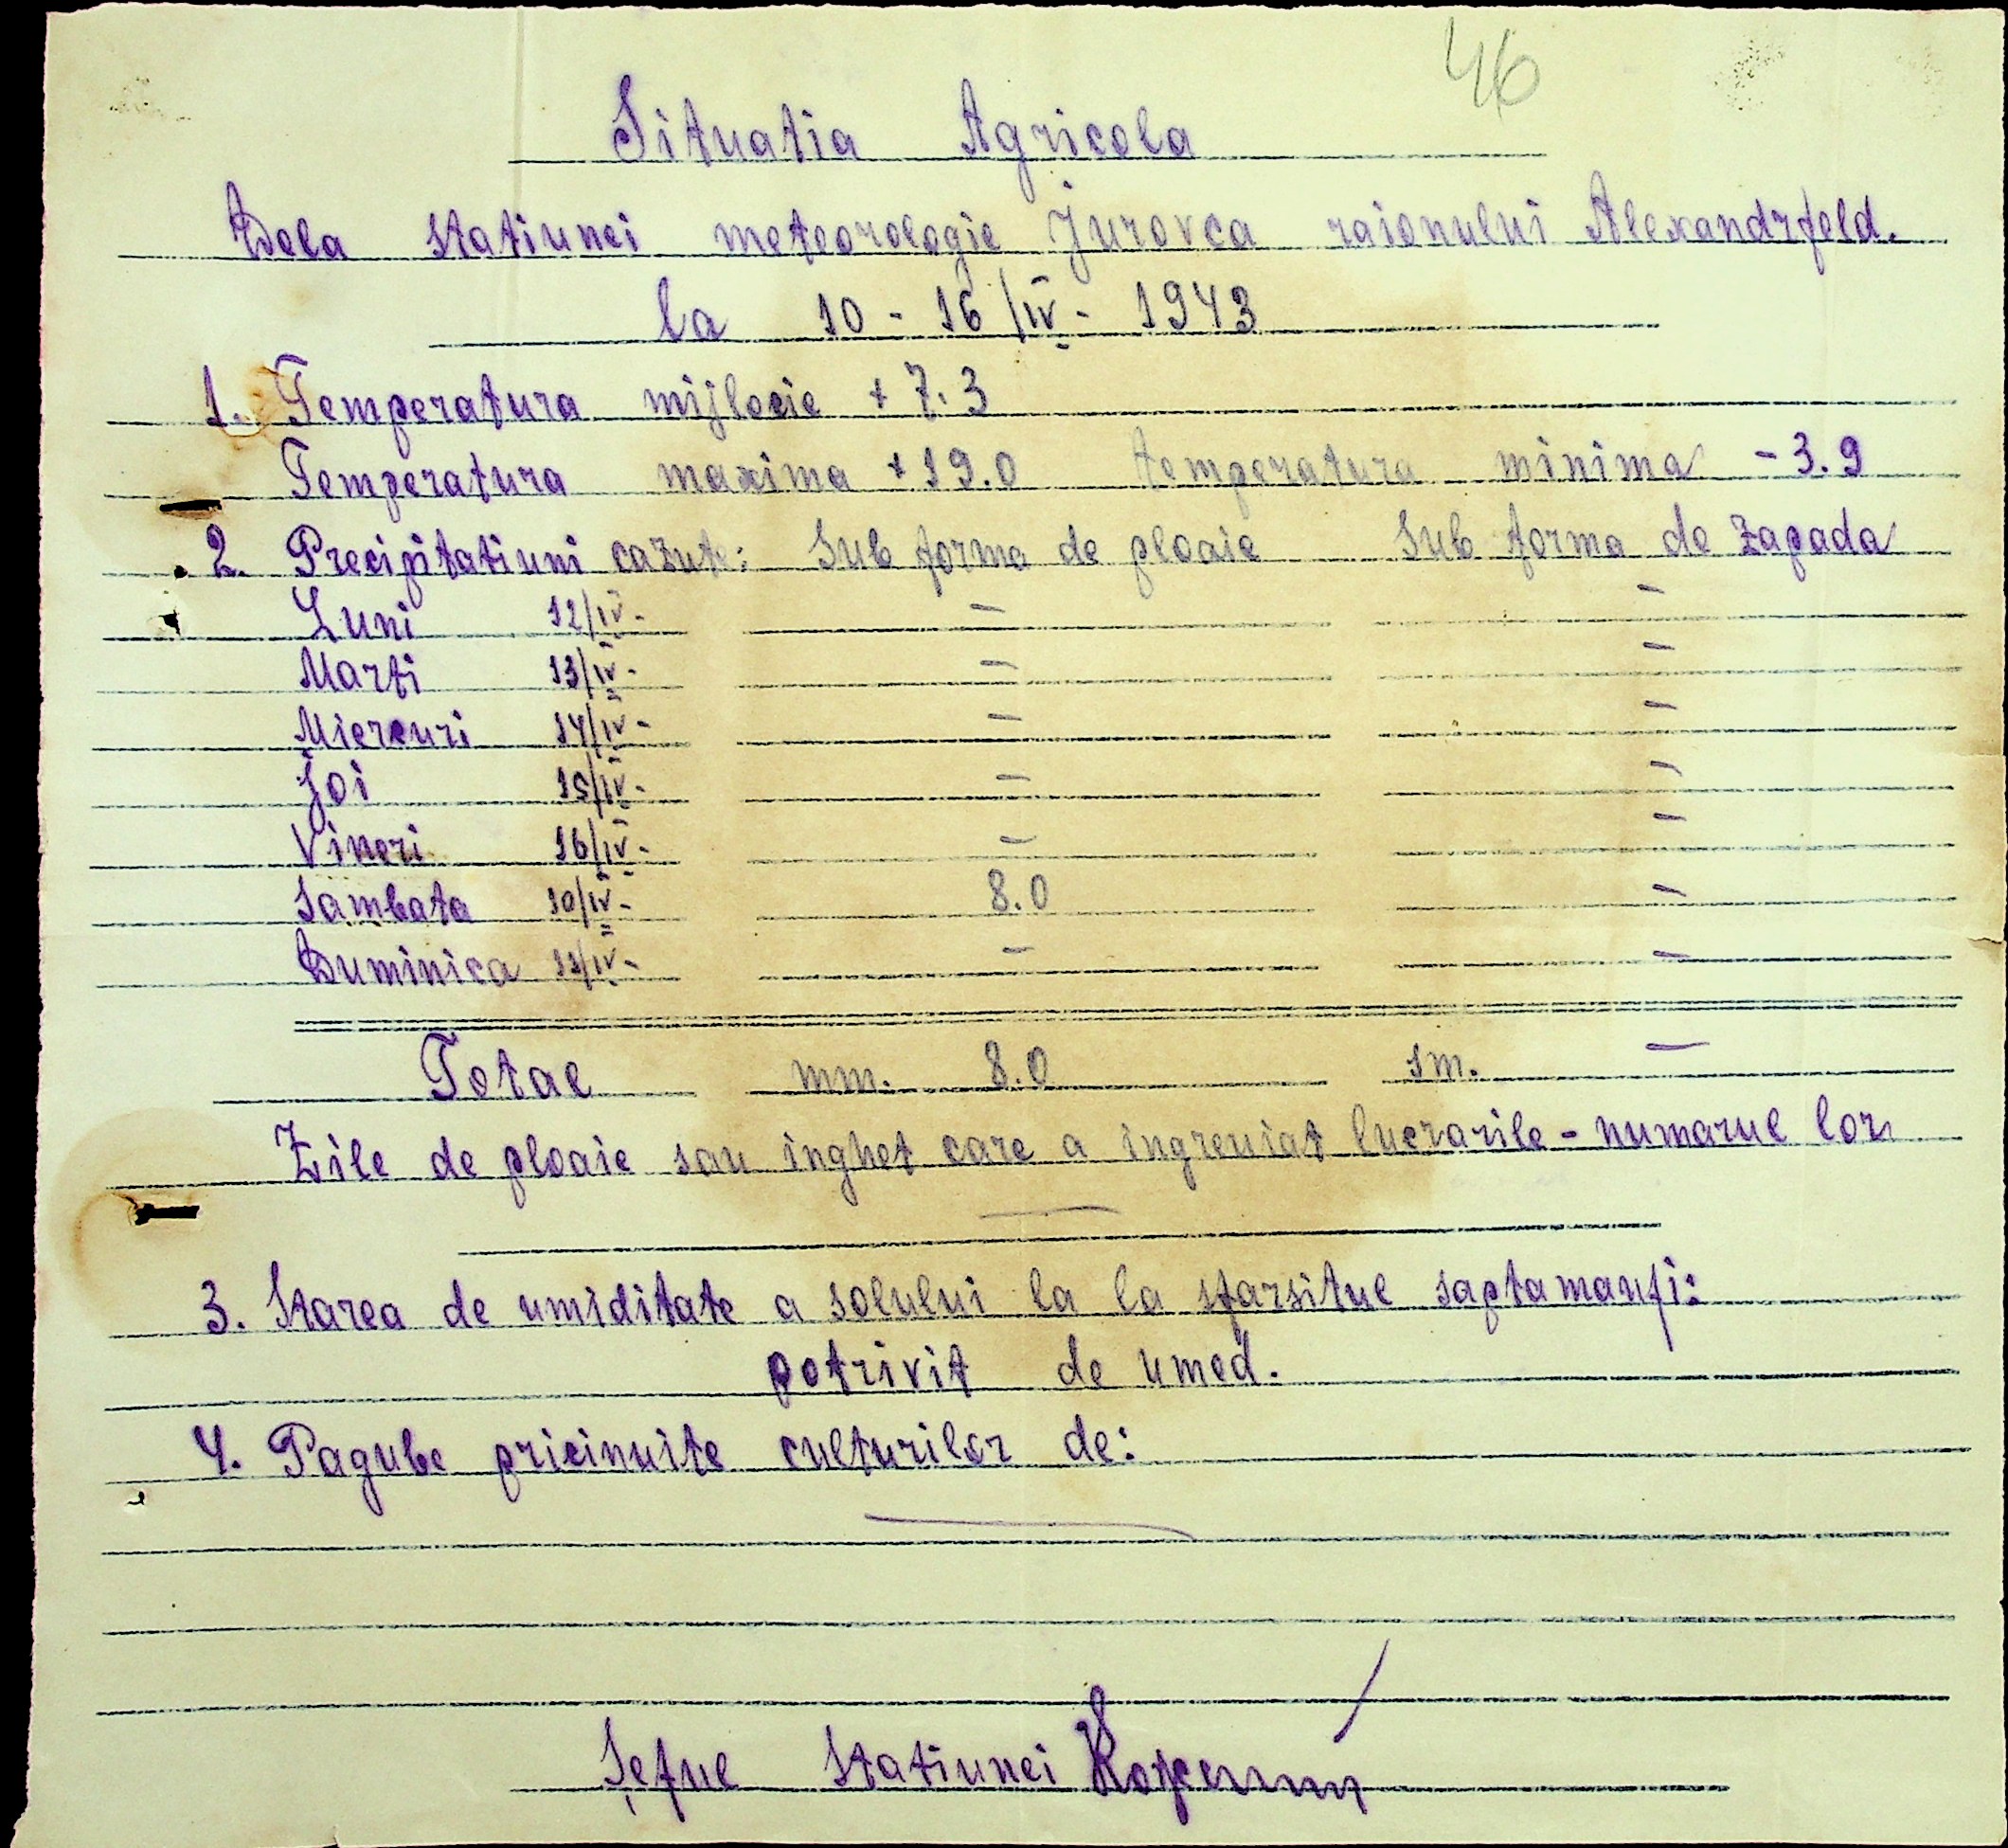 46
Situatia Agricola
Dela statiunei meteorologie Jurovca raionului Alexandrfeld.
la 10 - 16/IV - 1943
1. Temperatura mijlocie + 7.3
Temperatura maxima + 19.0 temperatura minima - 3.9
2. Precipitatiuni cazute: Sub forma de ploaie Sub forma de zapada
Luni 12/IV - - -
Marti 13/IV - - -
Miercuri 14/IV - - -
Joi 15/IV - - -
Vineri 16/IV - - -
Sambata 10/IV - 8.0 -
Duminica 11/IV - - -
Total mm. 8.0 sm. -
Zile de ploaie sau inghet care a ingreuiat lucrarile - numarul lor
-
3. Starea de umiditate a solului la la sfarsitul saptamanii:
potrivit de umed.
4. Pagube pricinuite culturilor de:
-
Şeful Statiunei